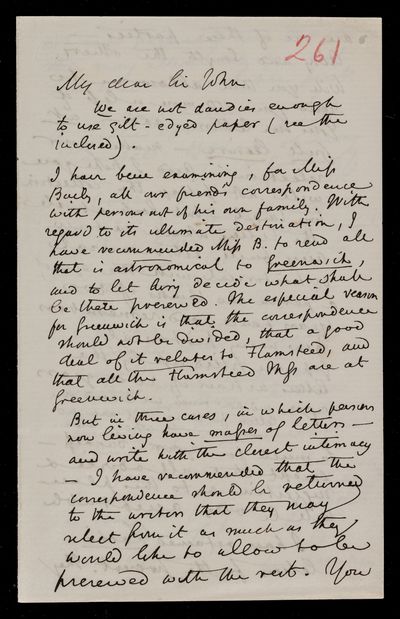 261
My dear Sir John
We are not dandies enough
to use gilt-edged paper (see the
inclosed).
I have been examining, for Miss
Baily, all our friend's correspondence
with persons not of his own family. With
regard to its ultimate destination, I
have recommended Miss B. to send all
that is astronomical to Greenwich,
and to let Airy decide what shall
be there preserved. The especial reason
for Greenwich is that the correspondence
should not be divided, that a good
deal of it relates to Flamsteed, and
that all the Flamsteed MSS are at
Greenwich.
But in three cases, in which persons
now living have masses of letters —
and write with the closest intimacy
— I have recommended that the
correspondence should be returned
to the writers that they may
select from it as much as they
would like to allow to be
preserved with the rest. You